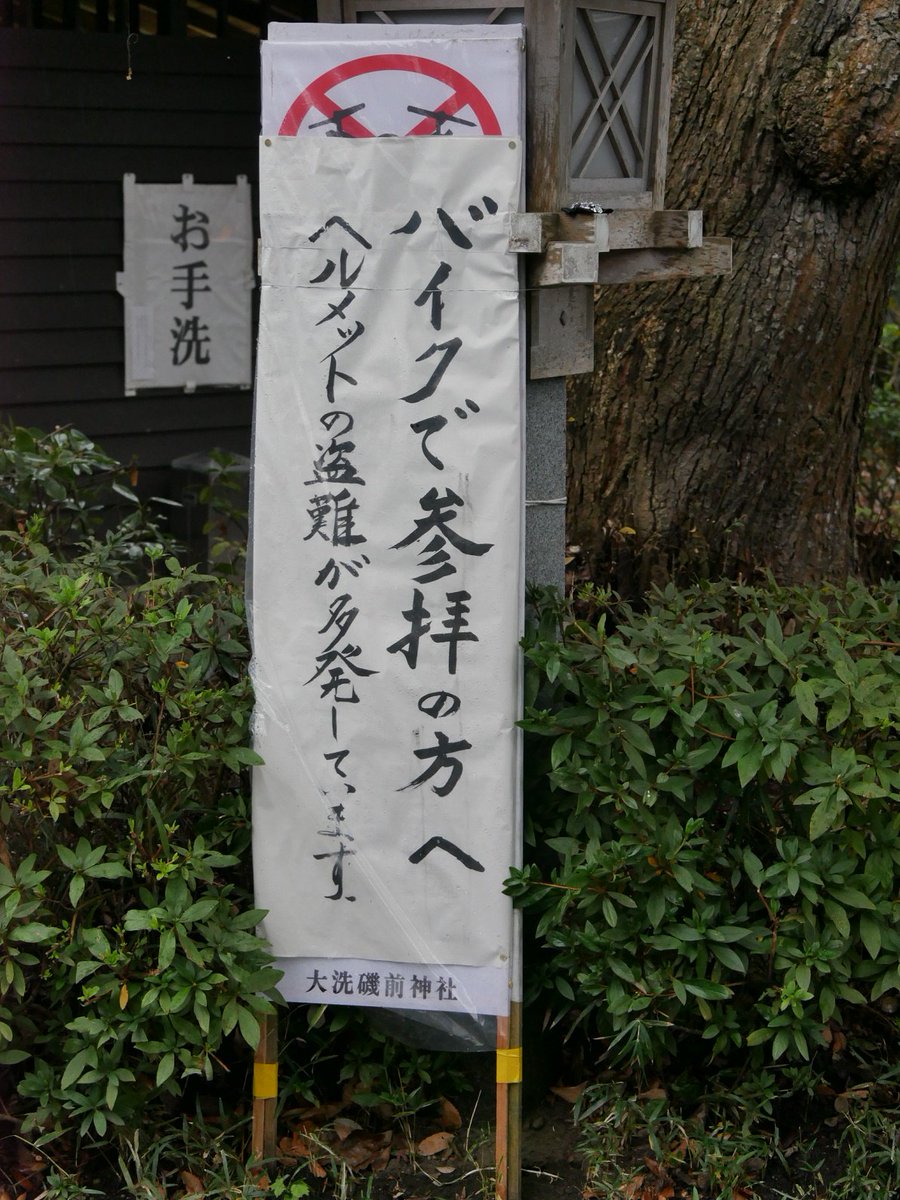 バイクで参拝の方へ
ヘルメットの盗難が多発しています
大洗磯前神社
お手洗